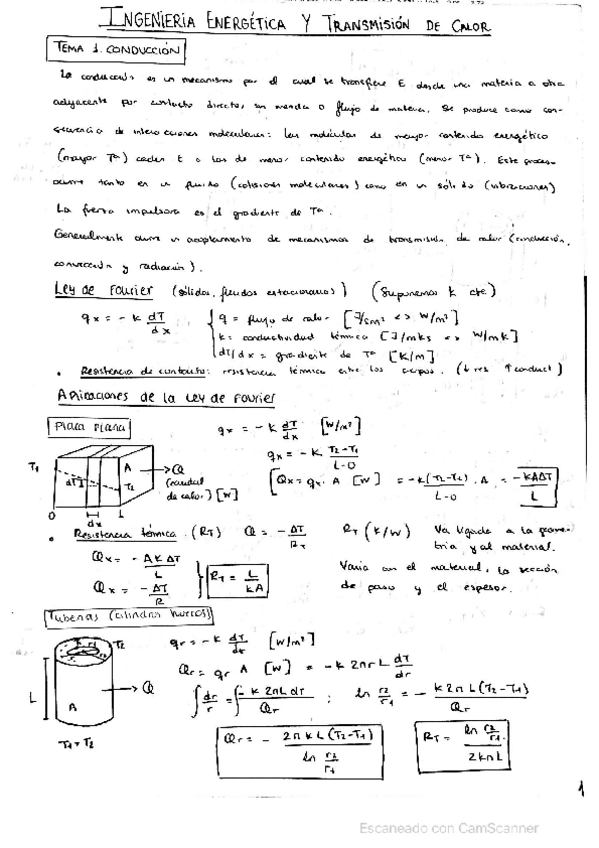 INGENIERÍA ENERGÉTICA Y TRANSMISIÓN DE CALOR
TEMA 1. CONDUCCIÓN
La conducción es un mecanismo por el cual se transfiere E desde una materia a otra
adyacente por contacto directo, sin mezcla o flujo de materia. Se produce como con-
secuencia de interacciones moleculares: las moléculas de mayor contenido energético
(mayor Tª) ceden E a las de menor contenido energético (menor Tª). Este proceso
ocurre tanto en un fluido (colisiones moleculares) como en un sólido (vibraciones)
La fuerza impulsora es el gradiente de Tª.
Generalmente ocurre un acoplamiento de mecanismos de transmisión de calor (conducción,
convección y radiación).
Ley de Fourier (sólidos, fluidos estacionarios) (Suponemos k cte)
qx = - k dT/dx
q = flujo de calor [J/sm² <> W/m²]
k = conductividad térmica [J/mks <> W/mk]
dT/dx = gradiente de Tª [K/m]
• Resistencia de contacto: resistencia térmica entre los cuerpos. (↓ res ↑ conduct)
Aplicaciones de la Ley de Fourier
Placa plana
qx = - k dT/dx [W/m²]
qx = - k T2-T1/L-0
[Qx = qx · A [W] = -k(T2-T1)/L-0 · A = -kAΔT/L
T1
dT
T2
A
Q
(caudal
de calor) [W]
0
dx
L
• Resistencia térmica. (RT) Q = - ΔT/RT RT (K/W) Va ligada a la geome-
tria y al material.
Qx = - AKΔT/L
Qx = - ΔT/R
RT = L/kA
Varia con el material, la sección
de paso y el espesor.
Tuberías (cilindros huecos)
T2
L
A
Q
T1 > T2
qr = - k dT/dx [W/m²]
Qr = qr A [W] = - k 2πrL dT/dr
∫ dr/r = ∫ - k 2πL dT/Qr ; ln r2/r1 = - k2πL(T2-T1)/Qr
Qr = - 2πkL(T2-T1)/ln r2/r1
RT = ln r2/r1/2kπL
1
Escaneado con CamScanner